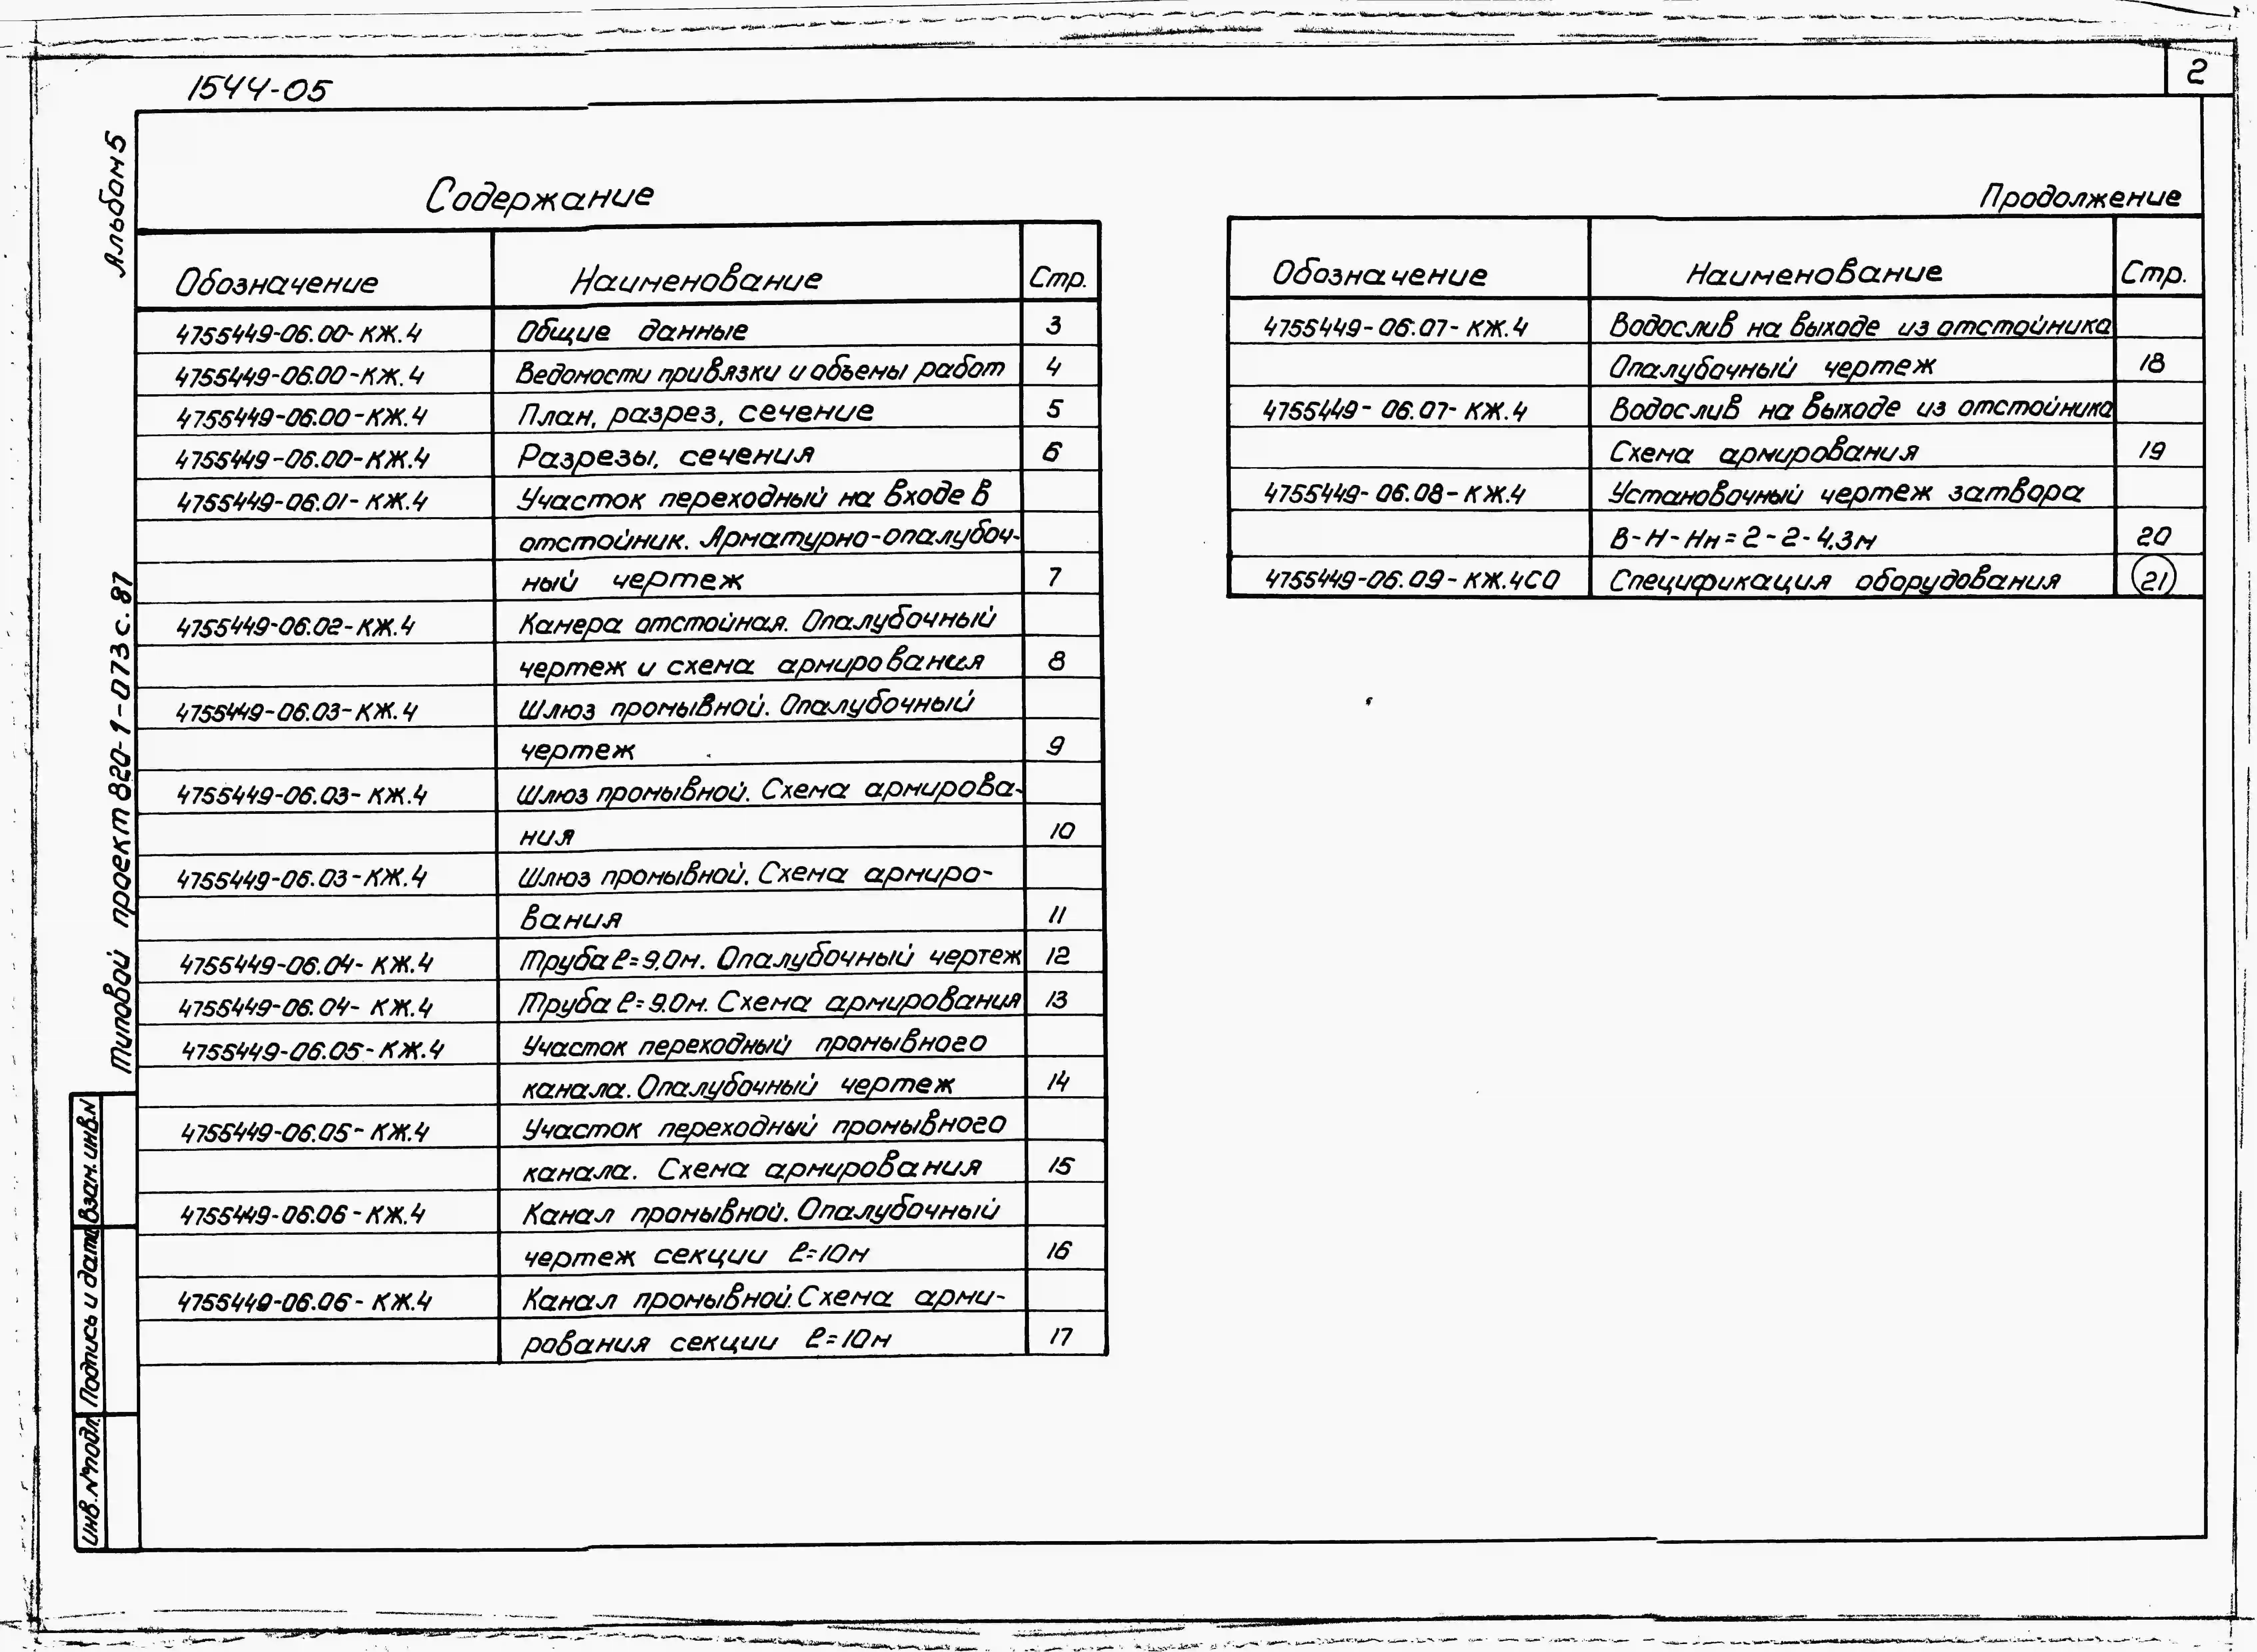 1544-05
2
Альбом 5
Типовой проект 820-1-073с.87
Взам. инв. N
Подпись и дата
Инв. № подл.
Содержание
Обозначение Наименование Стр.
4755449-06.00-КЖ.4 Общие данные 3
4755449-06.00-КЖ.4 Ведомости привязки и объемы работ 4
4755449-06.00-КЖ.4 План, разрез, сечение 5
4755449-06.00-КЖ.4 Разрезы, сечения 6
4755449-06.01-КЖ.4 Участок переходный на входе в
отстойник. Арматурно-опалубоч-
ный чертеж 7
4755449-06.02-КЖ.4 Камера отстойная. Опалубочный
чертеж и схема армирования 8
4755449-06.03-КЖ.4 Шлюз промывной. Опалубочный
чертеж 9
4755449-06.03-КЖ.4 Шлюз промывной. Схема армирова-
ния 10
4755449-06.03-КЖ.4 Шлюз промывной. Схема армиро-
вания 11
4755449-06.04-КЖ.4 Труба ℓ=9.0м. Опалубочный чертеж 12
4755449-06.04-КЖ.4 Труба ℓ=9.0м. Схема армирования 13
4755449-06.05-КЖ.4 Участок переходный промывного
канала. Опалубочный чертеж 14
4755449-06.05-КЖ.4 Участок переходный промывного
канала. Схема армирования 15
4755449-06.06-КЖ.4 Канал промывной. Опалубочный
чертеж секции ℓ=10м 16
4755449-06.06-КЖ.4 Канал промывной. Схема арми-
рования секции ℓ=10м 17
Продолжение
Обозначение Наименование Стр.
4755449-06.07-КЖ.4 Водослив на выходе из отстойника
Опалубочный чертеж 18
4755449-06.07-КЖ.4 Водослив на выходе из отстойника
Схема армирования 19
4755449-06.08-КЖ.4 Установочный чертеж затвора
В-Н-Нн=2-2-4.3м 20
4755449-06.09-КЖ.4СО Спецификация оборудования 21